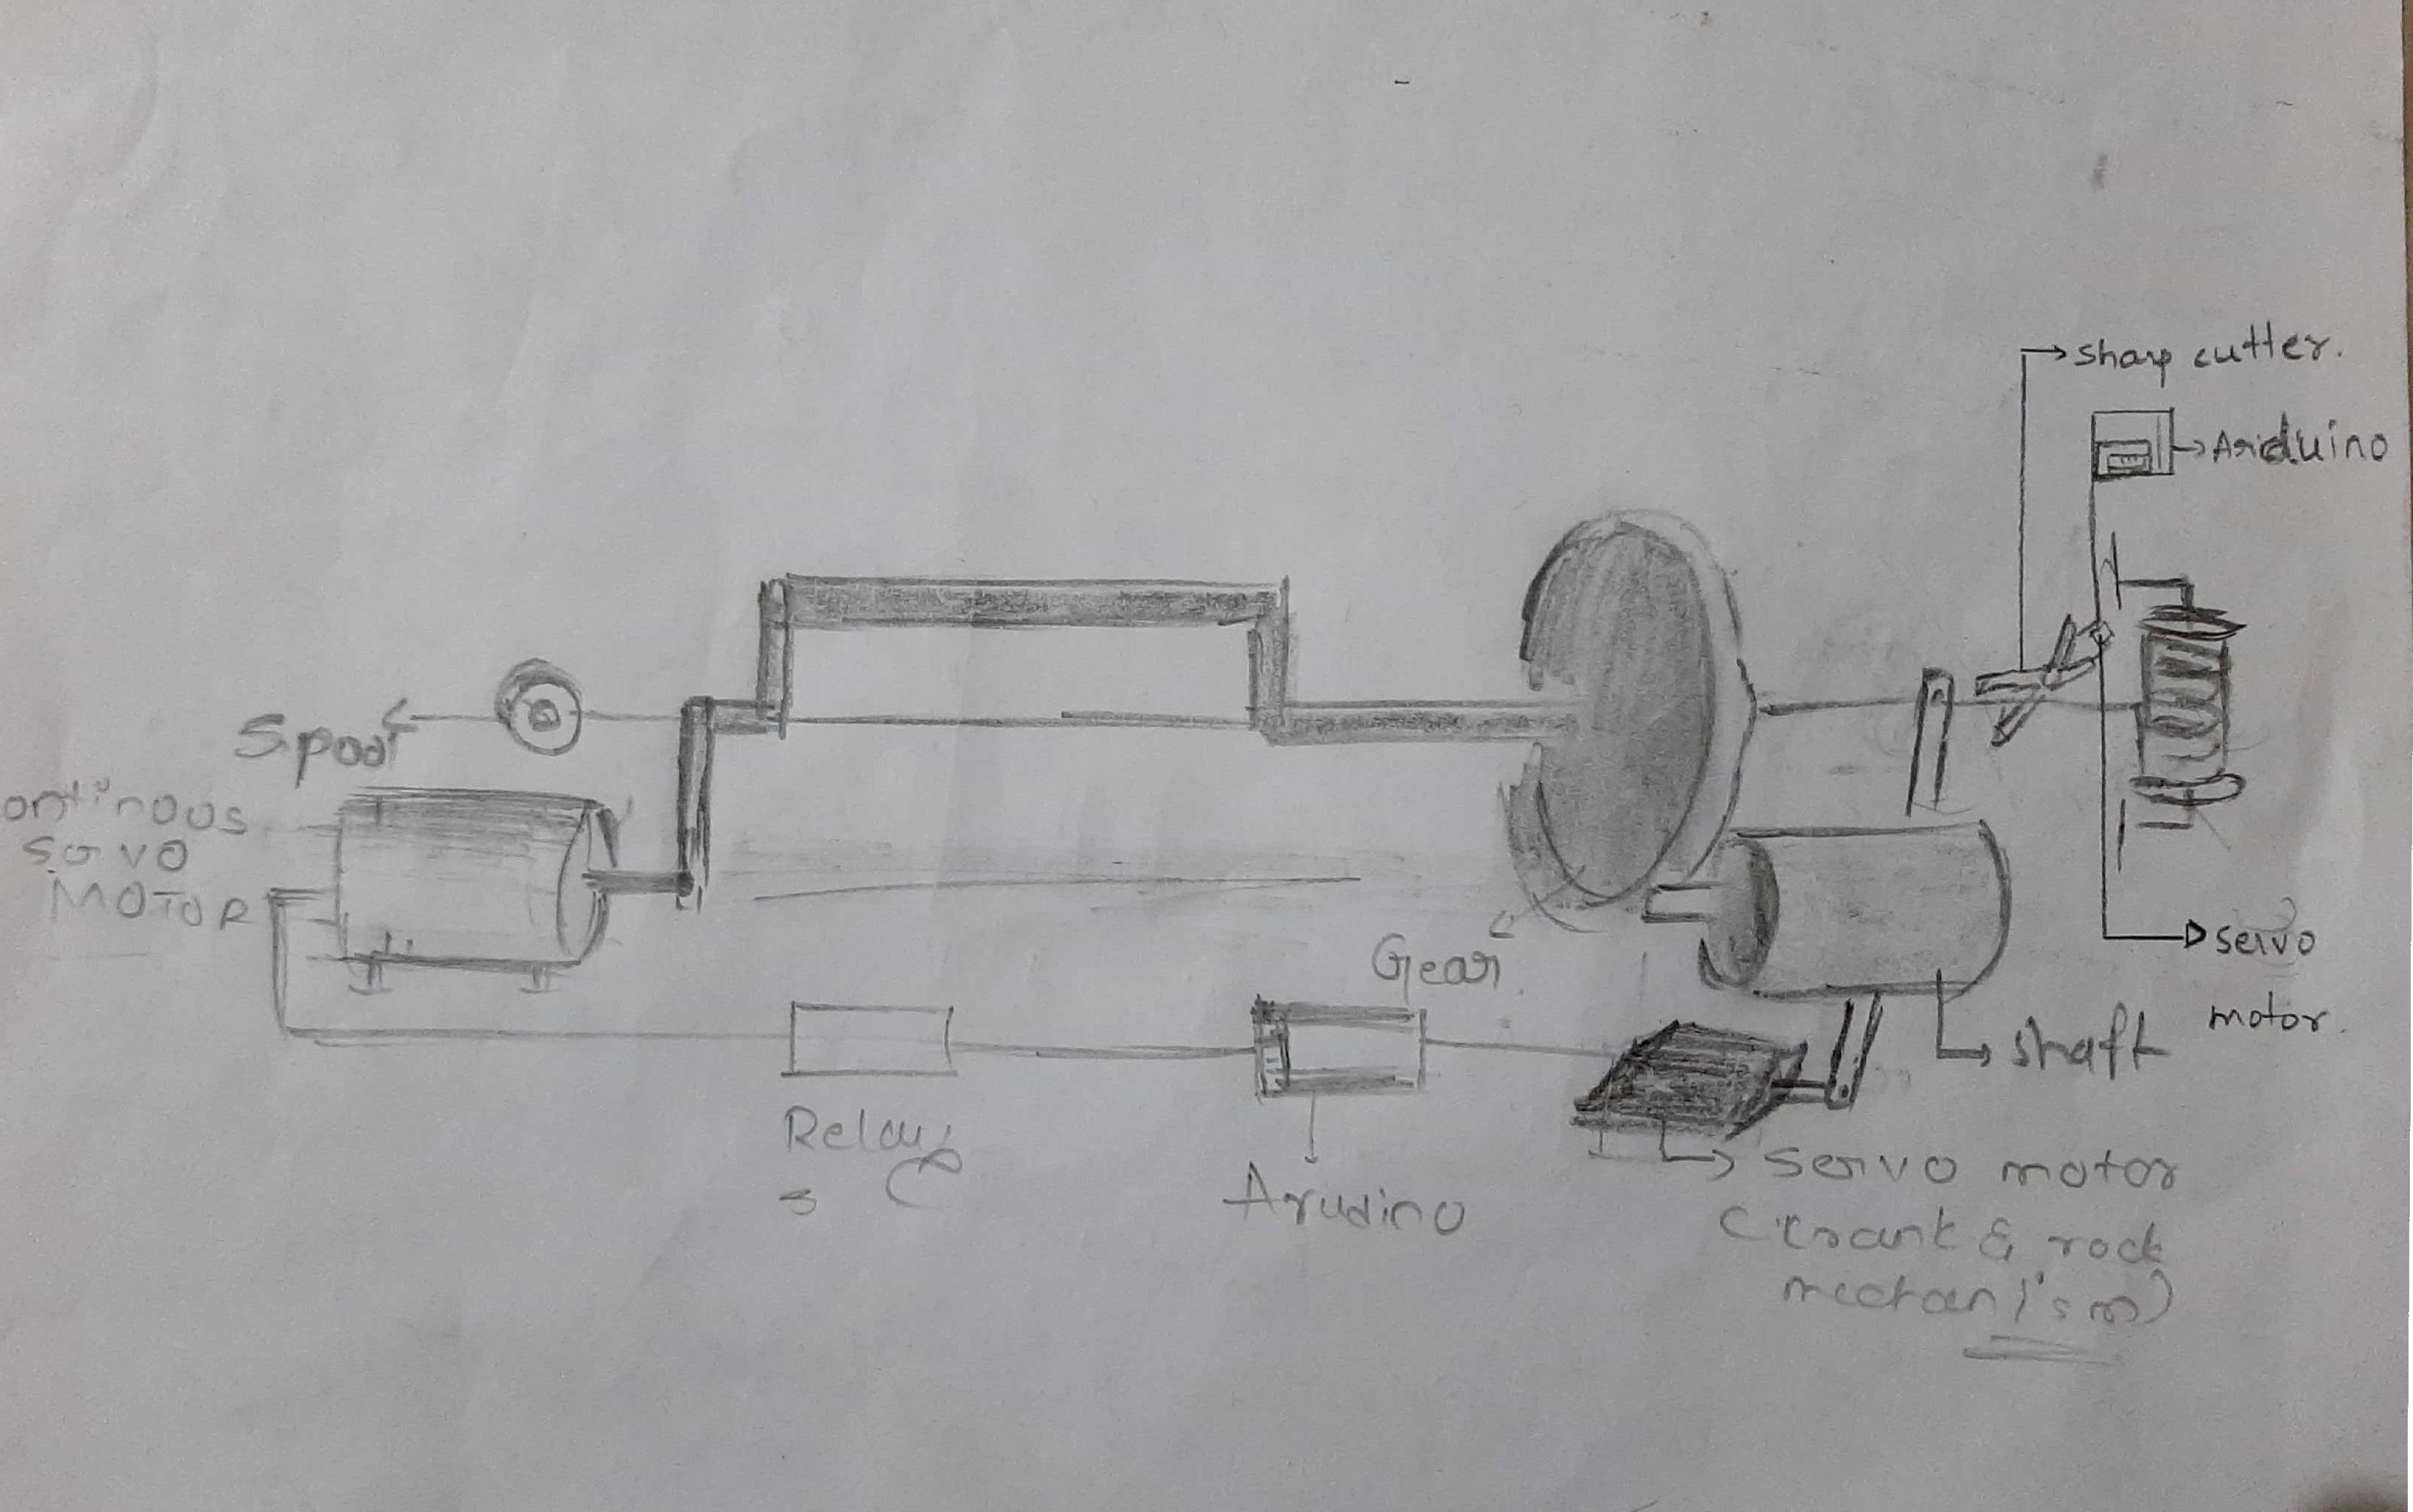 sharp cutter.
Ariduino
Spool
ontinous
servo
MOTOR
Gear
servo
motor.
shaft
Relay
s
Arudino
servo motor
(crank & rock
mechanism)